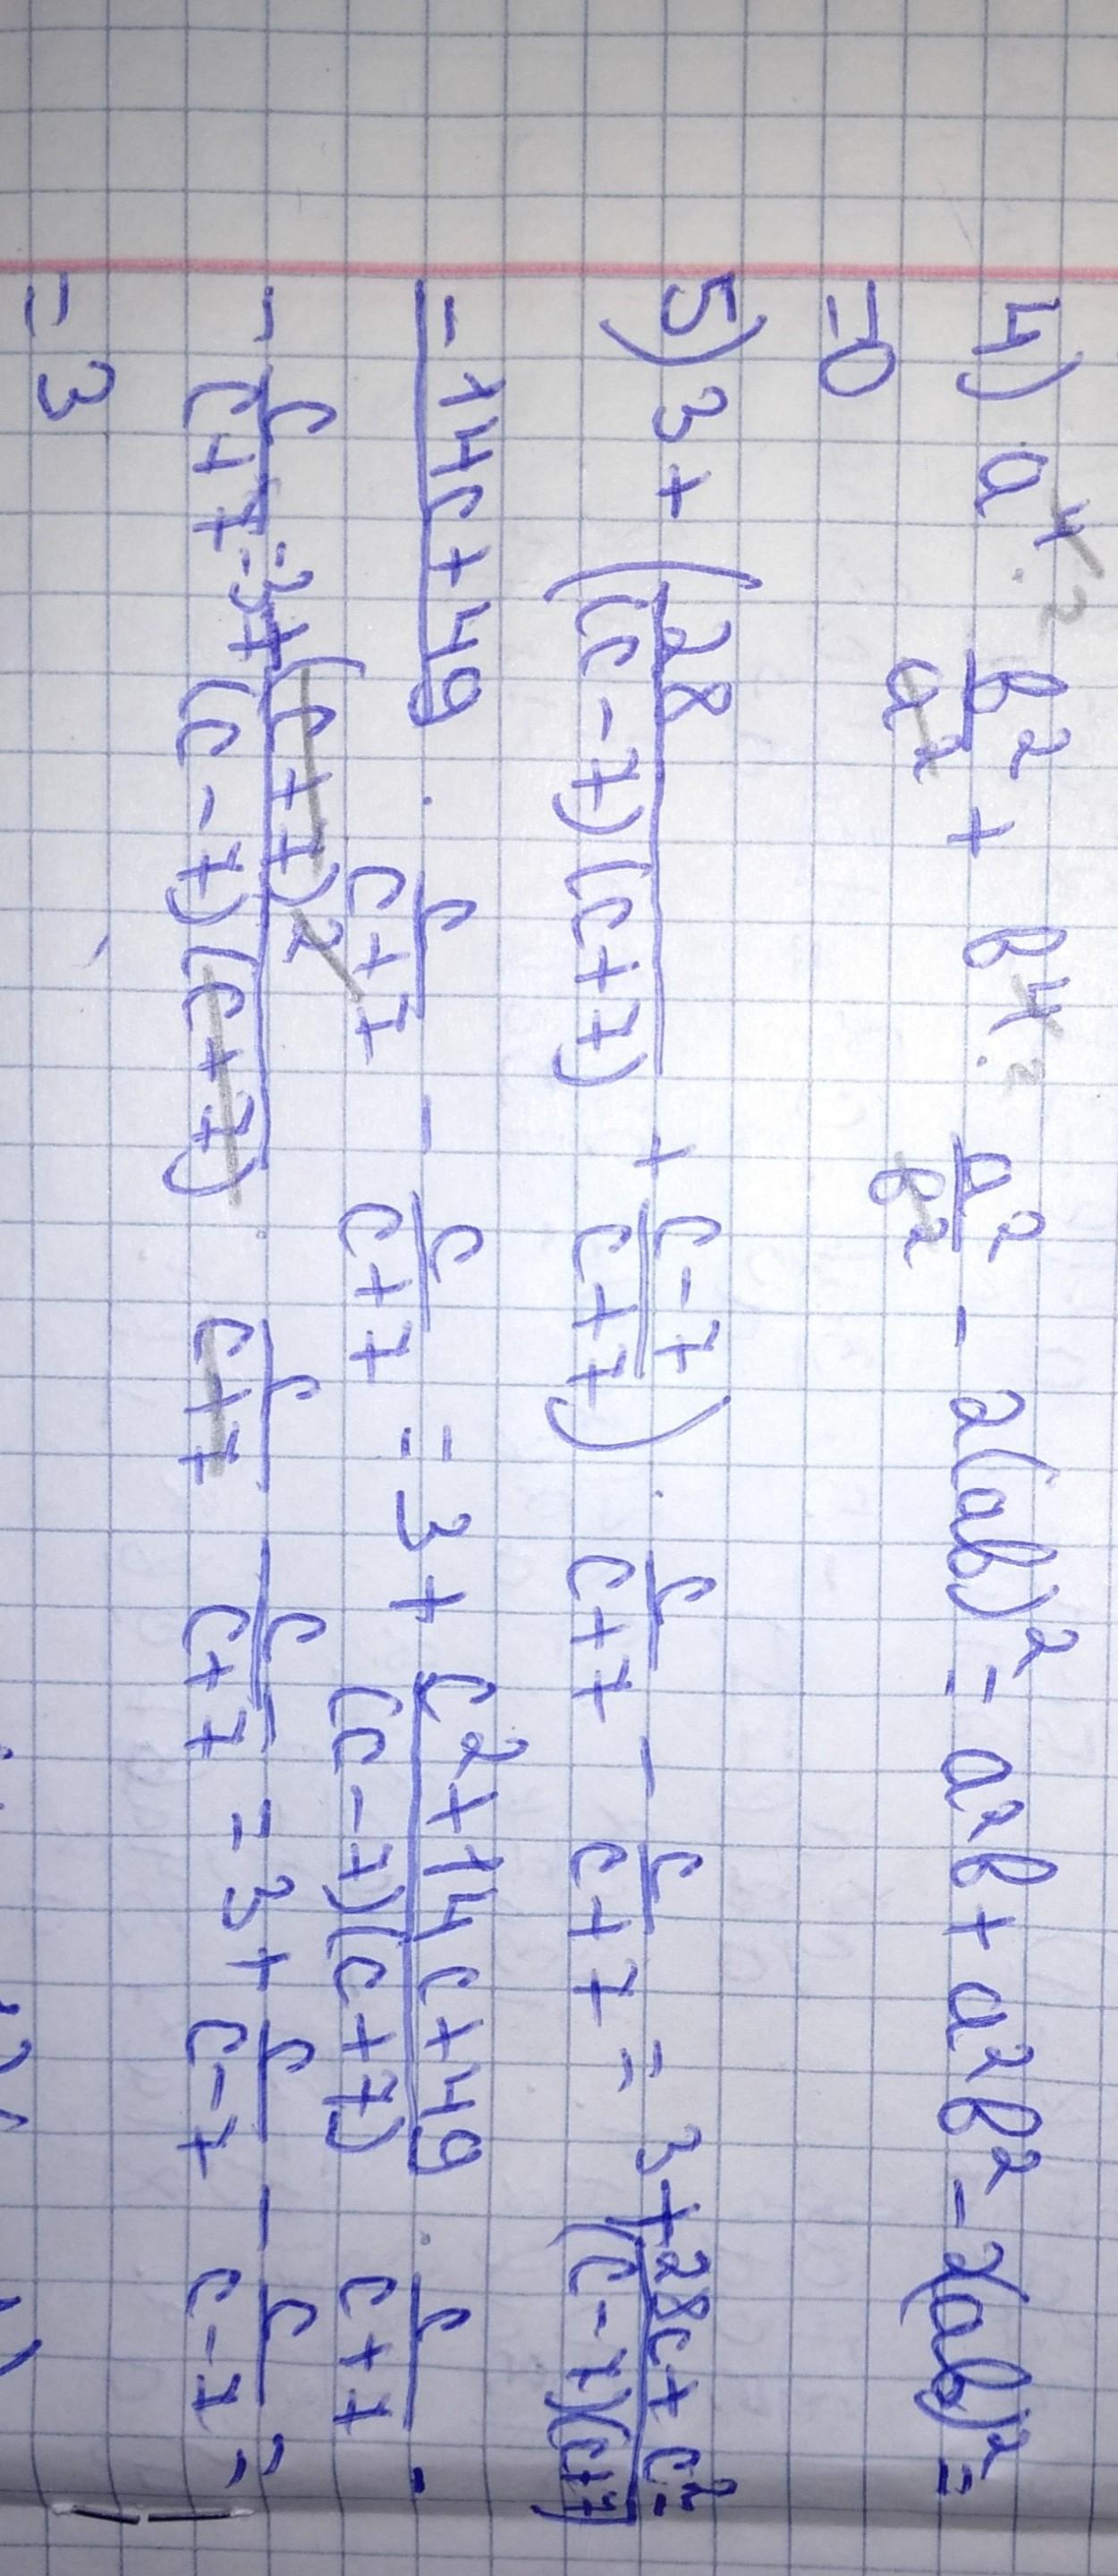 4) a⁴·² b²/a² + b⁴·² a²/b² - 2(ab)² = a²b + a²b² - 2(ab)² =
= 0
5) 3 + (28/(c-7)(c+7) + c-7/c+7) · c/c+7 - c/c+7 = 3 + 28c + c² -/(c-7)(c+7)
- 14c + 49 · c/c+7 - c/c+7 = 3 + c² + 14c + 49/(c-7)(c+7) · c/c+7 -
- c/c+7 = 3 + (c+7)²/(c-7)(c+7) · c/c+7 - c/c+7 = 3 + c/c-7 - c/c-7 =
= 3